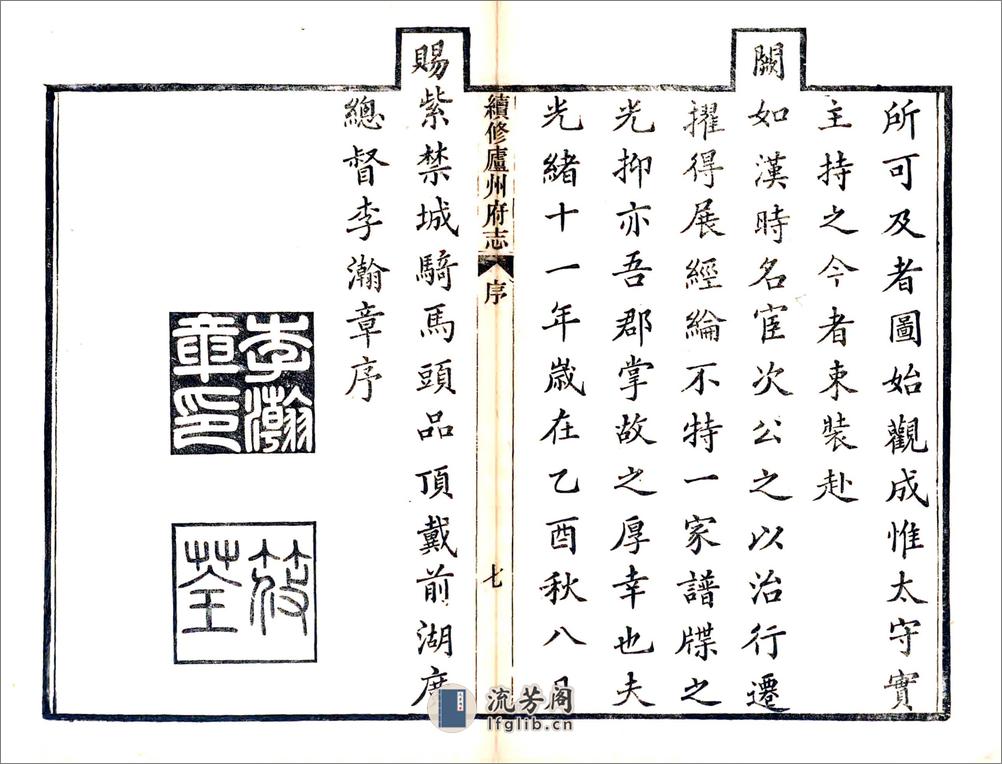 所可及者圖始觀成惟太守實
主持之今者束裝赴
闕如漢時名宦次公之以治行遷
擢得展經綸不特一家譜牒之
光抑亦吾郡掌故之厚幸也夫
光緒十一年歲在乙酉秋八月
續修廬州府志 序 七
賜紫禁城騎馬頭品頂戴前湖廣
總督李瀚章序
李瀚章印
筱荃
流芳阁
lfglib.cn